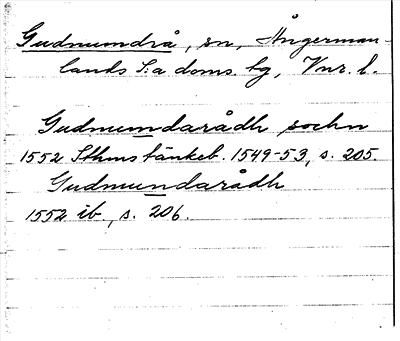 Gudmundrå, sn, Ångerman-
lands S:a doms. hg, Vnr. l.
Gudmundarådh sochn
1552 Sthms tänkeb. 1549-53, s. 205.
Gudmundarådh
1552 ib., s. 206.